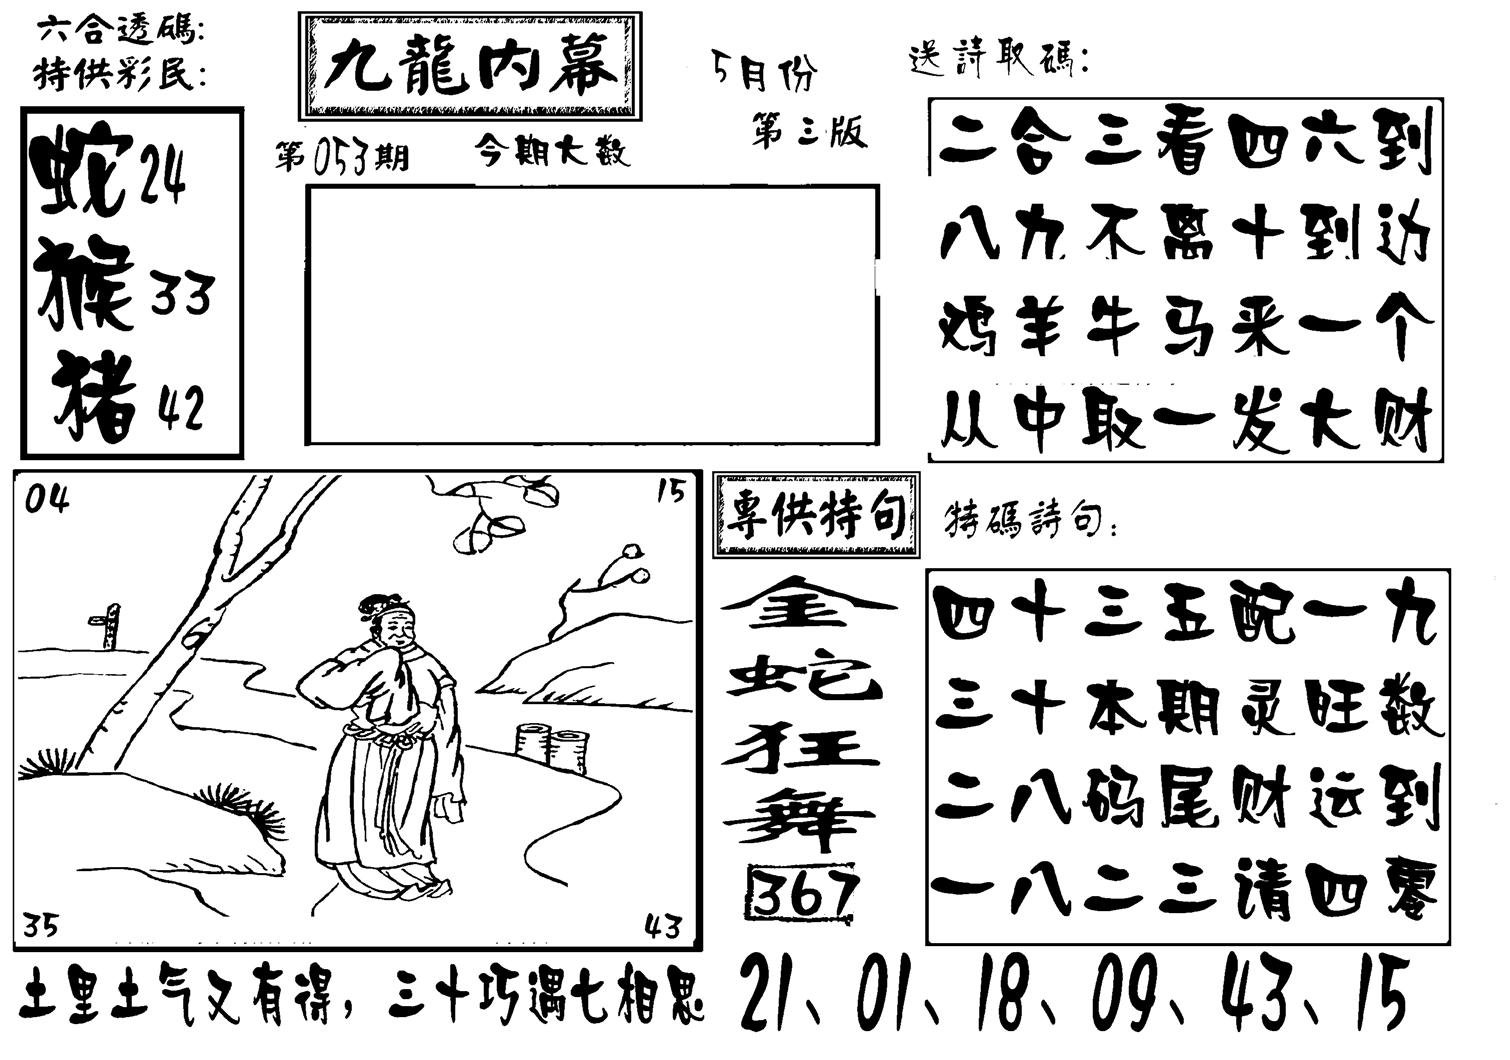 六合透碼:
特供彩民:
蛇24
猴33
猪42
九龍内幕
第053期
今期大数
5月份
第三版
送詩取碼:
二合三看四六到
八九不离十到边
鸡羊牛马来一个
从中取一发大财
04
15
35
43
專供特句
金蛇狂舞
367
特碼詩句:
四十三五配一九
三十本期灵旺数
二八码尾财运到
一八二三请四零
土里土气又有得，三十巧遇七相思
21、01、18、09、43、15